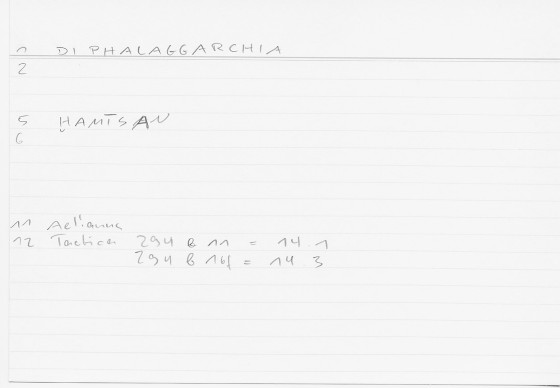 1 DIPHALAGGARCHIA
2
5 ḤAMĪSAN
6
11 Aelianus
12 Tactica 294 b 11 = 14 1
294 b 16f = 14 3